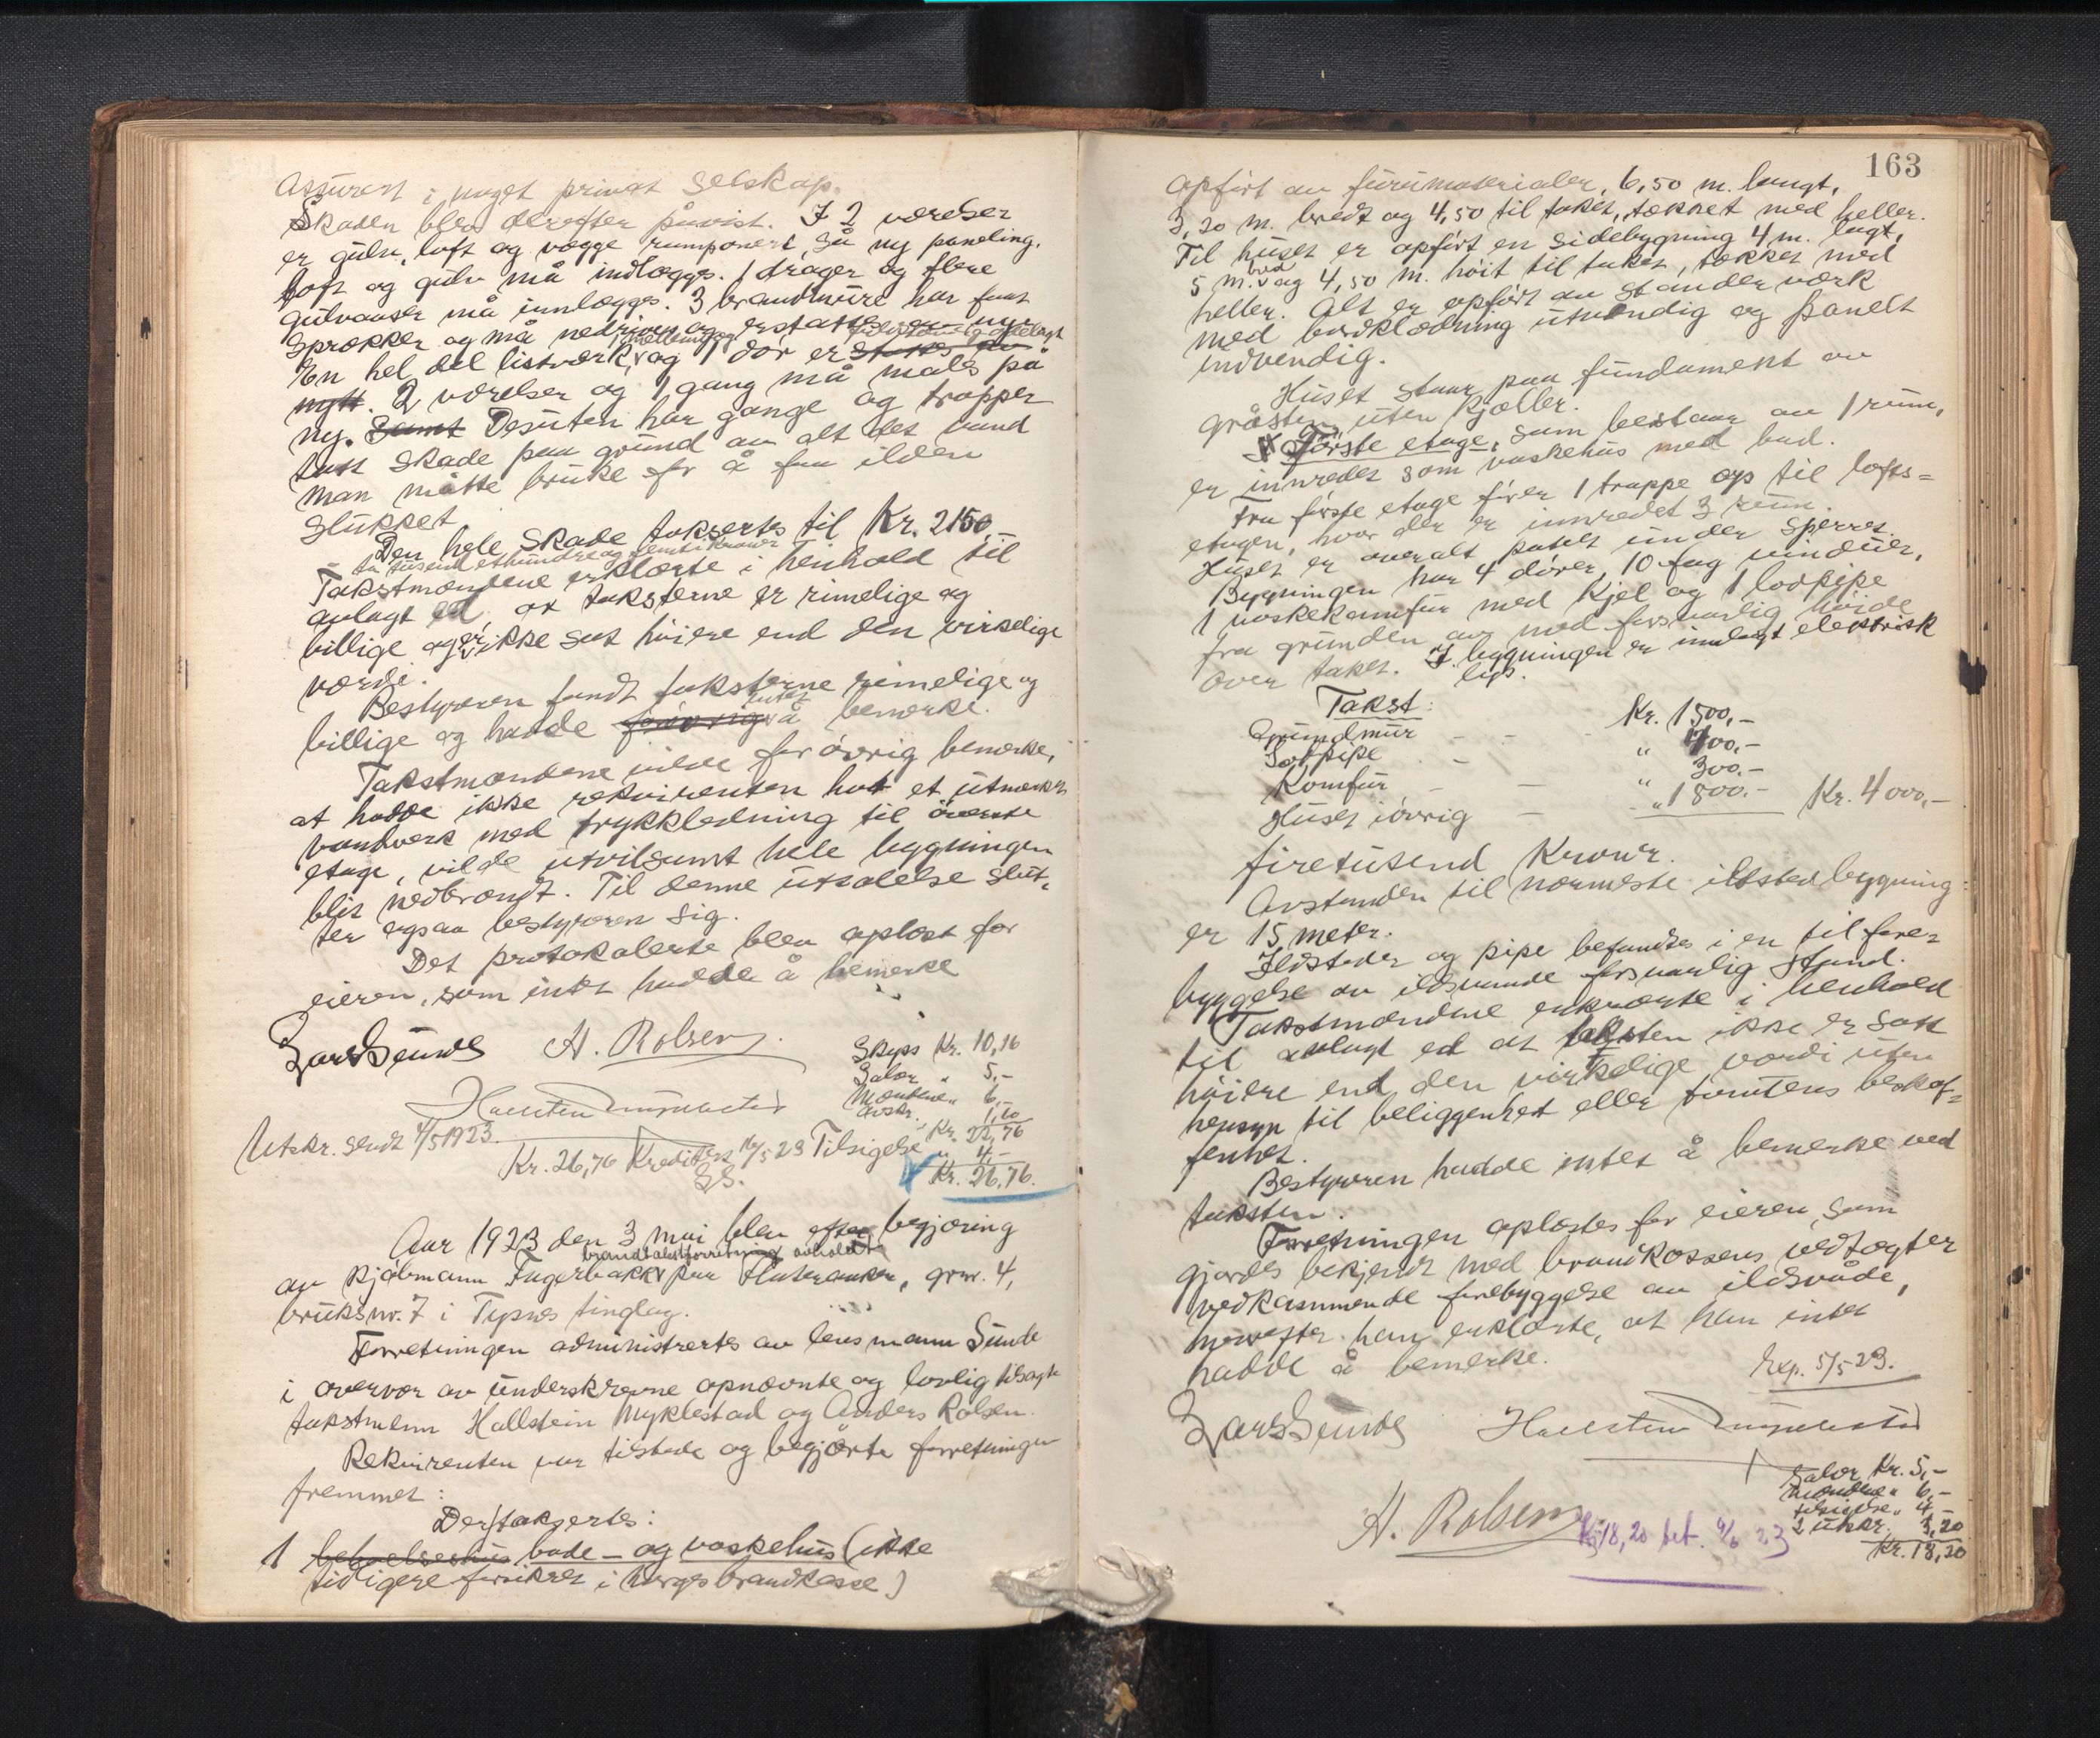 Assurert i noget privat selskap.
Skaden blev derefter påvist. I 2 værelser
er gulv, loft og vægge ramponert så ny paneling,
loft og gulv må indlægges. 1 drager og flere
gulvaaser må innlægges. 3 brandmure har faat
sprækker og må nedrives og erstattes av nye
En hel del listverk, og 1 dør er
nytt. 2 værelser og 1 gang må males på
ny. Samt Desuten har gange og trapper
tatt skade paa grund av alt det vand
man måtte bruke for å faa ilden
slukket.
Den hele skade taksertes til Kr. 2150,-
to tusend ethundre og femti kroner
Takstmændene erklærte i henhold til
avlagt ed, at taksterne er rimelige og
billige og er ikke sat høiere end den virkelige
værdi.
Bestyreren fandt taksterne rimelige og
billige og hadde forøvrig intet å bemerke.
Takstmændene vilde forøvrig bemerke,
at hadde ikke rekvirenten hat et utmerket
vandverk med trykkledning til øverste
etage, vilde utvilsomt hele bygningen
blit nedbrændt. Til denne uttalelse slut-
ter ogsaa bestyreren sig.
Det protokolerte blev oplæst for
eieren, som intet hadde å bemerke
Lars Sunde A. Rolsen
Hallstein Myklestad
Skyss Kr. 10,16
Salær " 5,-
Mændene " 6,-
Avskr. " 1,60
Kr. 22,76
Tilsigelse " 4,-
Kr. 26,76.
Utskr. sendt 4/5 1923.
Kr. 26,76 Kreditert 16/5 23
LS.
Aar 1923 den 3 mai blev efter begjæring
av Kjøbmann Fagerbakk brandtakstforretning avholdt paa , grnr. 4,
bruksnr. 7 i Tysnes tinglag.
Forretningen administrertes av lensmann Sunde
i overvær av underskrevne opnævnte og lovlig tilsagte
takstmenn Hallstein Myklestad og Anders Rolsen.
Rekvirenten var tilstede og begjærte forretningen
fremmet:
Der taksertes:
1 beboelseshus bade- og vaskehus (ikke
tidligere forsikret i Norges brandkasse)
163
opført av furumaterialer, 6,50 m. langt,
3,20 m. bredt og 4,50 til taket, tækket med heller.
Til huset er opført en sidebygning 4 m. lagt,
5 m. bred og 4,50 m. høit til taket, tækket med
heller. Alt er opført av standerverk
med bordklædning utvendig og panelt
indvendig.
Huset staar paa fundament av
gråsten, uten kjæller.
I Første etage, som bestaar av 1 rum,
er innredet som vaskehus med bad.
Fra første etage fører 1 trappe op til lofts-
etagen, hvor der er innredet 3 rum.
Huset er overalt panelt under sperrer.
Bygningen har 4 dører, 10 fag vinduer,
1 vaskekomfur med kjel og 1 lodpipe
fra grunden av med forsvarlig høide
over taket. I bygningen er innlagt elektrisk
lys.
Takst:
Grundmur - - - Kr. 1500,-
Lodpipe - - " 400,-
Komfur - - " 300,-
Huset iøvrig - " 1800,- Kr. 4000,-
firetusend Kroner.
Avstanden til nærmeste ildsted bygning
er 15 meter.
Ildsteder og pipe befandtes i en til fore-
byggelse av ildsvaade forsvarlig stand.
Takstmændene erklærte i henhold
til avlagt ed at taksten ikke er satt
høiere end den virkelige værdi uten
hensyn til beliggenhet eller tomtens beskaf-
fenhet.
Bestyreren hadde intet å bemerke ved
taksten.
Forretningen oplæstes for eieren, som
gjordes bekjendt med brandkassens vedtægter
vedkommende forebyggelse av ildsvåde,
hvorefter han erklærte, at han intet
hadde å bemerke.
Exp. 5/5 23.
Lars Sunde Hallstein Myklestad
A. Rolsen
Salær Kr. 5,-
Mændene " 6,-
tilsigelse " 4,-
2 utskr. 3,20
Kr. 18,20
Kr 18,20 bet. 9/6 23